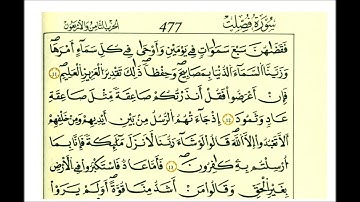 سُورَةُ فُصِّلَتْ 477 الحزب الثامن والأربعون
فَقَضَيٰهُنَّ سَبْعَ سَمَٰوَاتٍ فِي يَوْمَيْنِ وَأَوْحَىٰ فِي كُلِّ سَمَآءٍ أَمْرَهَا
وَزَيَّنَّا اَلسَّمَآءَ اَلدُّنْيَا بِمَصَٰبِيحَ وَحِفْظاً ذَٰلِكَ تَقْدِيرُ اُلْعَزِيزِ اِلْعَلِيمِ ١١
فَإِنْ أَعْرَضُوا فَقُلْ أَنذَرْتُكُمْ صَٰعِقَةً مِّثْلَ صَٰعِقَةِ
عَادٍ وَثَمُودَ ١٢ إِذْ جَآءَتْهُمُ اُلرُّسُلُ مِنۢ بَيْنِ أَيْدِيهِمْ وَمِنْ خَلْفِهِمُۥ
أَلَّا تَعْبُدُوا إِلَّا اَللَّهَ قَالُوا لَوْ شَآءَ رَبُّنَا لَأَنزَلَ مَلَٰٓئِكَةً فَإِنَّا بِمَا
أُرْسِلْتُم بِهِۦ كَٰفِرُونَ ١٣ فَأَمَّا عَادٌ فَاسْتَكْبَرُوا فِي اِلْأَرْضِ
بِغَيْرِ اِلْحَقِّ وَقَالُوا مَنْ أَشَدُّ مِنَّا قُوَّةً أَوَلَمْ يَرَوْا